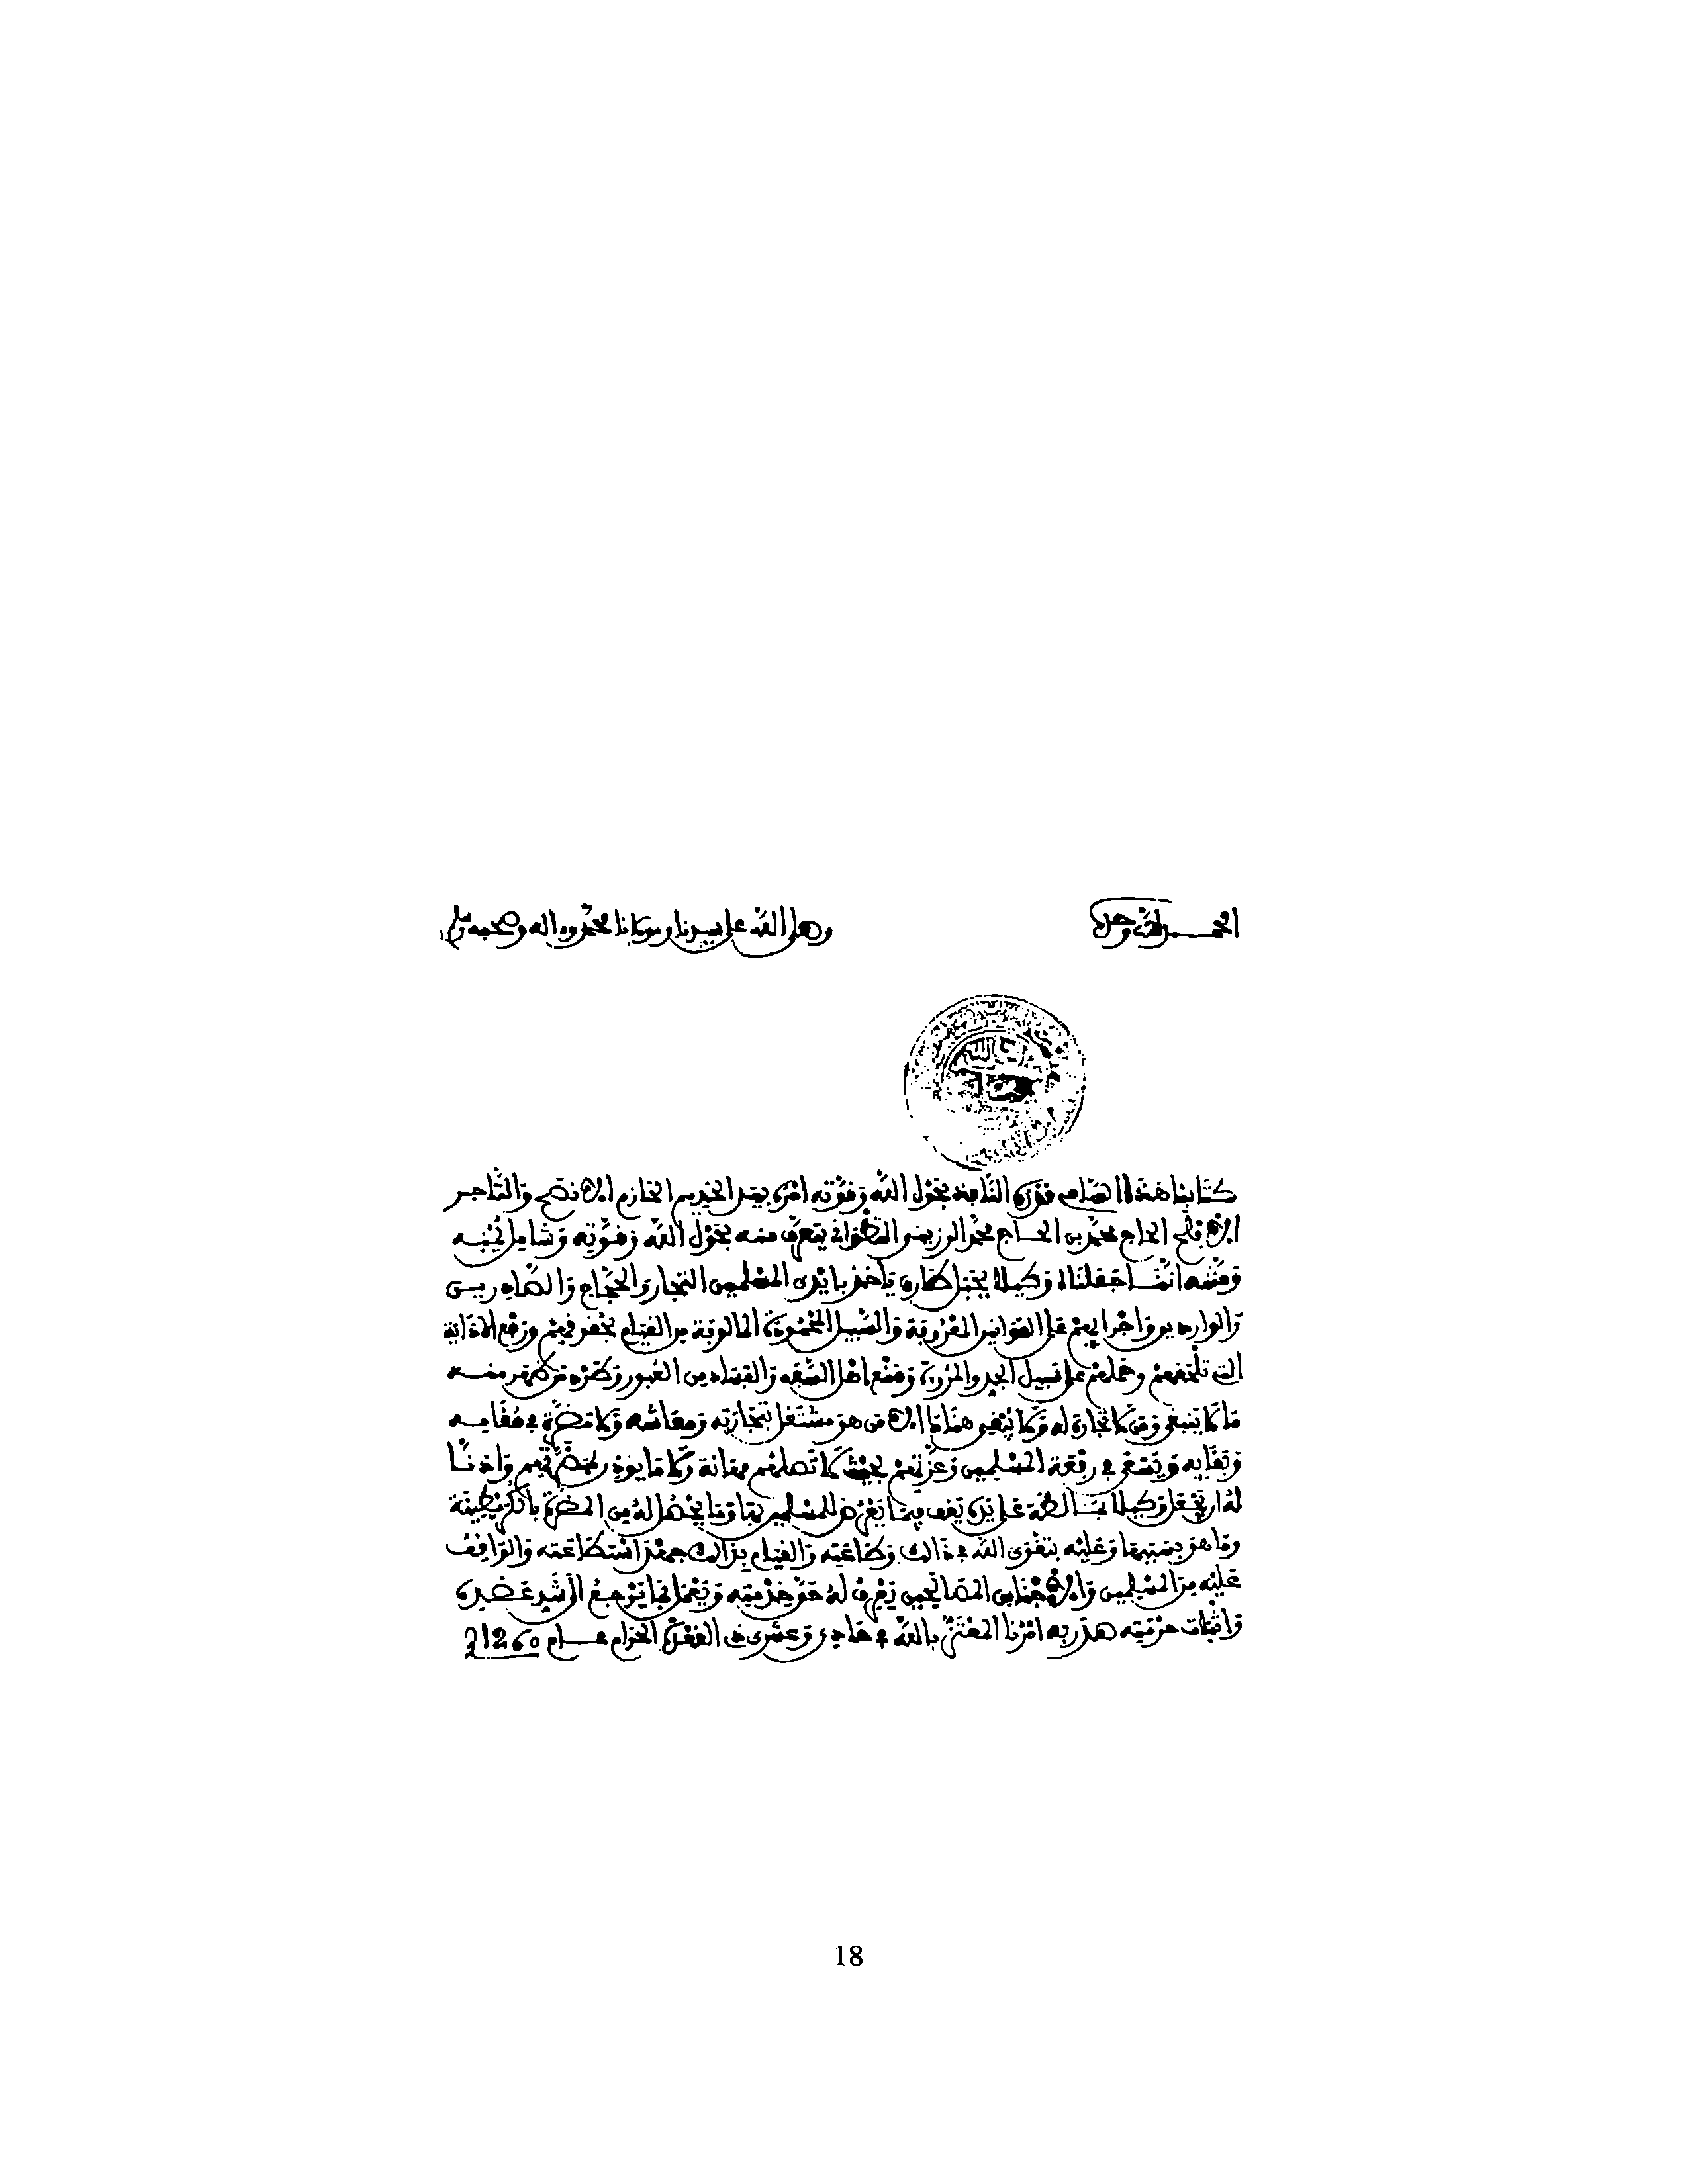 الحمد لله وحده
وصلى الله على سيدنا ومولانا محمد وءاله وصحبه وسلم
كتابنا هذا السامي قدره النافذ بحول الله وقوته امره بيد الخديم الحازم الانصح والتاجر
الافلح الحاج محمد بن الحاج محمد الرزيني التطواني يتعرف منه بحول الله وقوته وشامل يمنه
ومنته اننا جعلناه وكيلا بجبل طارق ياخذ بايدي المسلمين التجار والحجاج والصادرين
والواردين واجرايهم على القوانين المعروفة والسبيل المحمودة المالوفة من القيام بحقوقهم ورفع الاذاية
التي تلحقهم وحملهم على سبيل الجد والمروءة ومنع اهل السفه والفساد من العبور وطرد من ظهر منه
ما لا ينبغي ومن لا تجارة له ولا يبقى هناك الا من هو مشتغل بتجارته ومعاشه ولا مضرة في مقامه
وبقايه ويسعى في رفعة المسلمين وعزتهم بحيث لا تصلهم مهانة ولا ما يوذي بهضمتهم واذنا
له ان يجعل وكيلا على يده يقف فيما يعرض للمسلمين بها وما يحصل له من المضرة
وما هو بمثبتها وعليه بتقوى الله في ذالك وطاعته والقيام بذالك جهد استطاعته والواقف
عليه من المسلمين والاجناس المصالحين يعرف له حق خدمته ويعمل بما يوجبه الرشد عضده
واثبات حرمته صدر به امرنا المعتز بالله في حادي وعشري ذي القعدة الحرام عام 1260
18